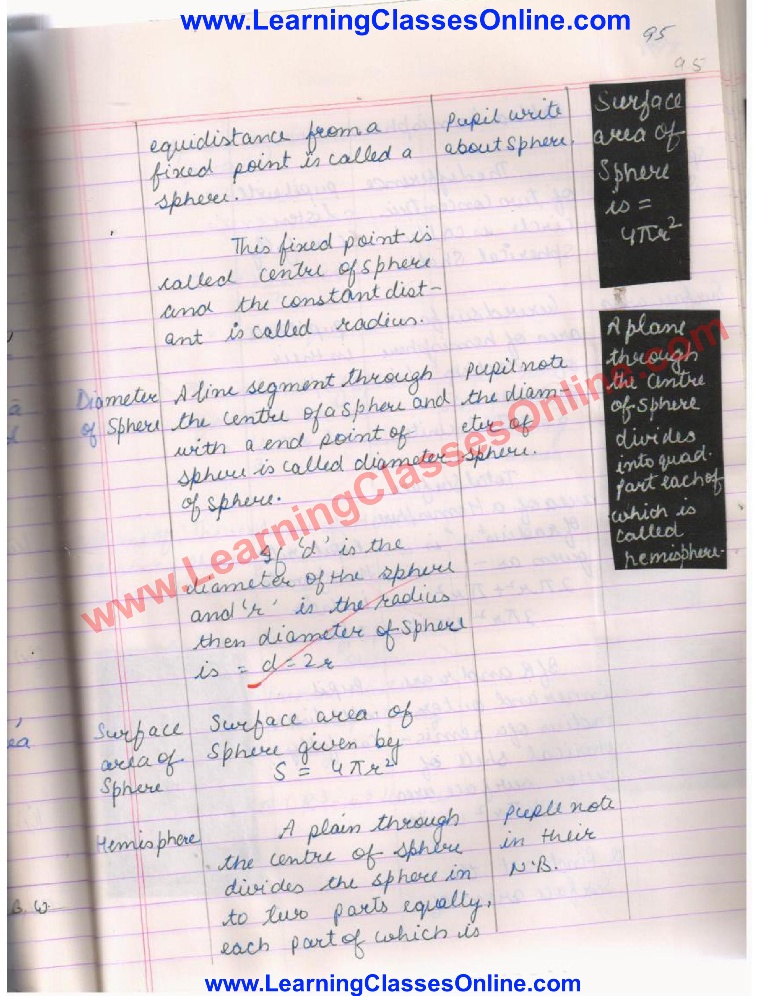 www.LearningClassesOnline.com
95
95
equidistance from a
fixed point is called a
sphere.
This fixed point is
called centre of sphere
and the constant dist-
ant is called radius.
Pupil write
about sphere.
Surface
area of
Sphere
is
=
4πr²
Diameter
of Sphere
A line segment through
the centre of a sphere and
with a end point of
sphere is called diameter
of sphere.
Pupil note
the diam-
eter of
sphere.
A plane
through
the centre
of sphere
divides
into quad.
part each of
which is
called
hemisphere.
If 'd' is the
diameter of the sphere
and 'r' is the radius
then diameter of sphere
is = d = 2r
www.LearningClassesOnline.com
Surface
area of
Sphere
Surface area of
Sphere given by
S = 4πr²
Hemisphere
A plain through
the centre of sphere
divides the sphere in
to two parts equally,
each part of which is
Pupil note
in their
N.B.
B.W.
www.LearningClassesOnline.com